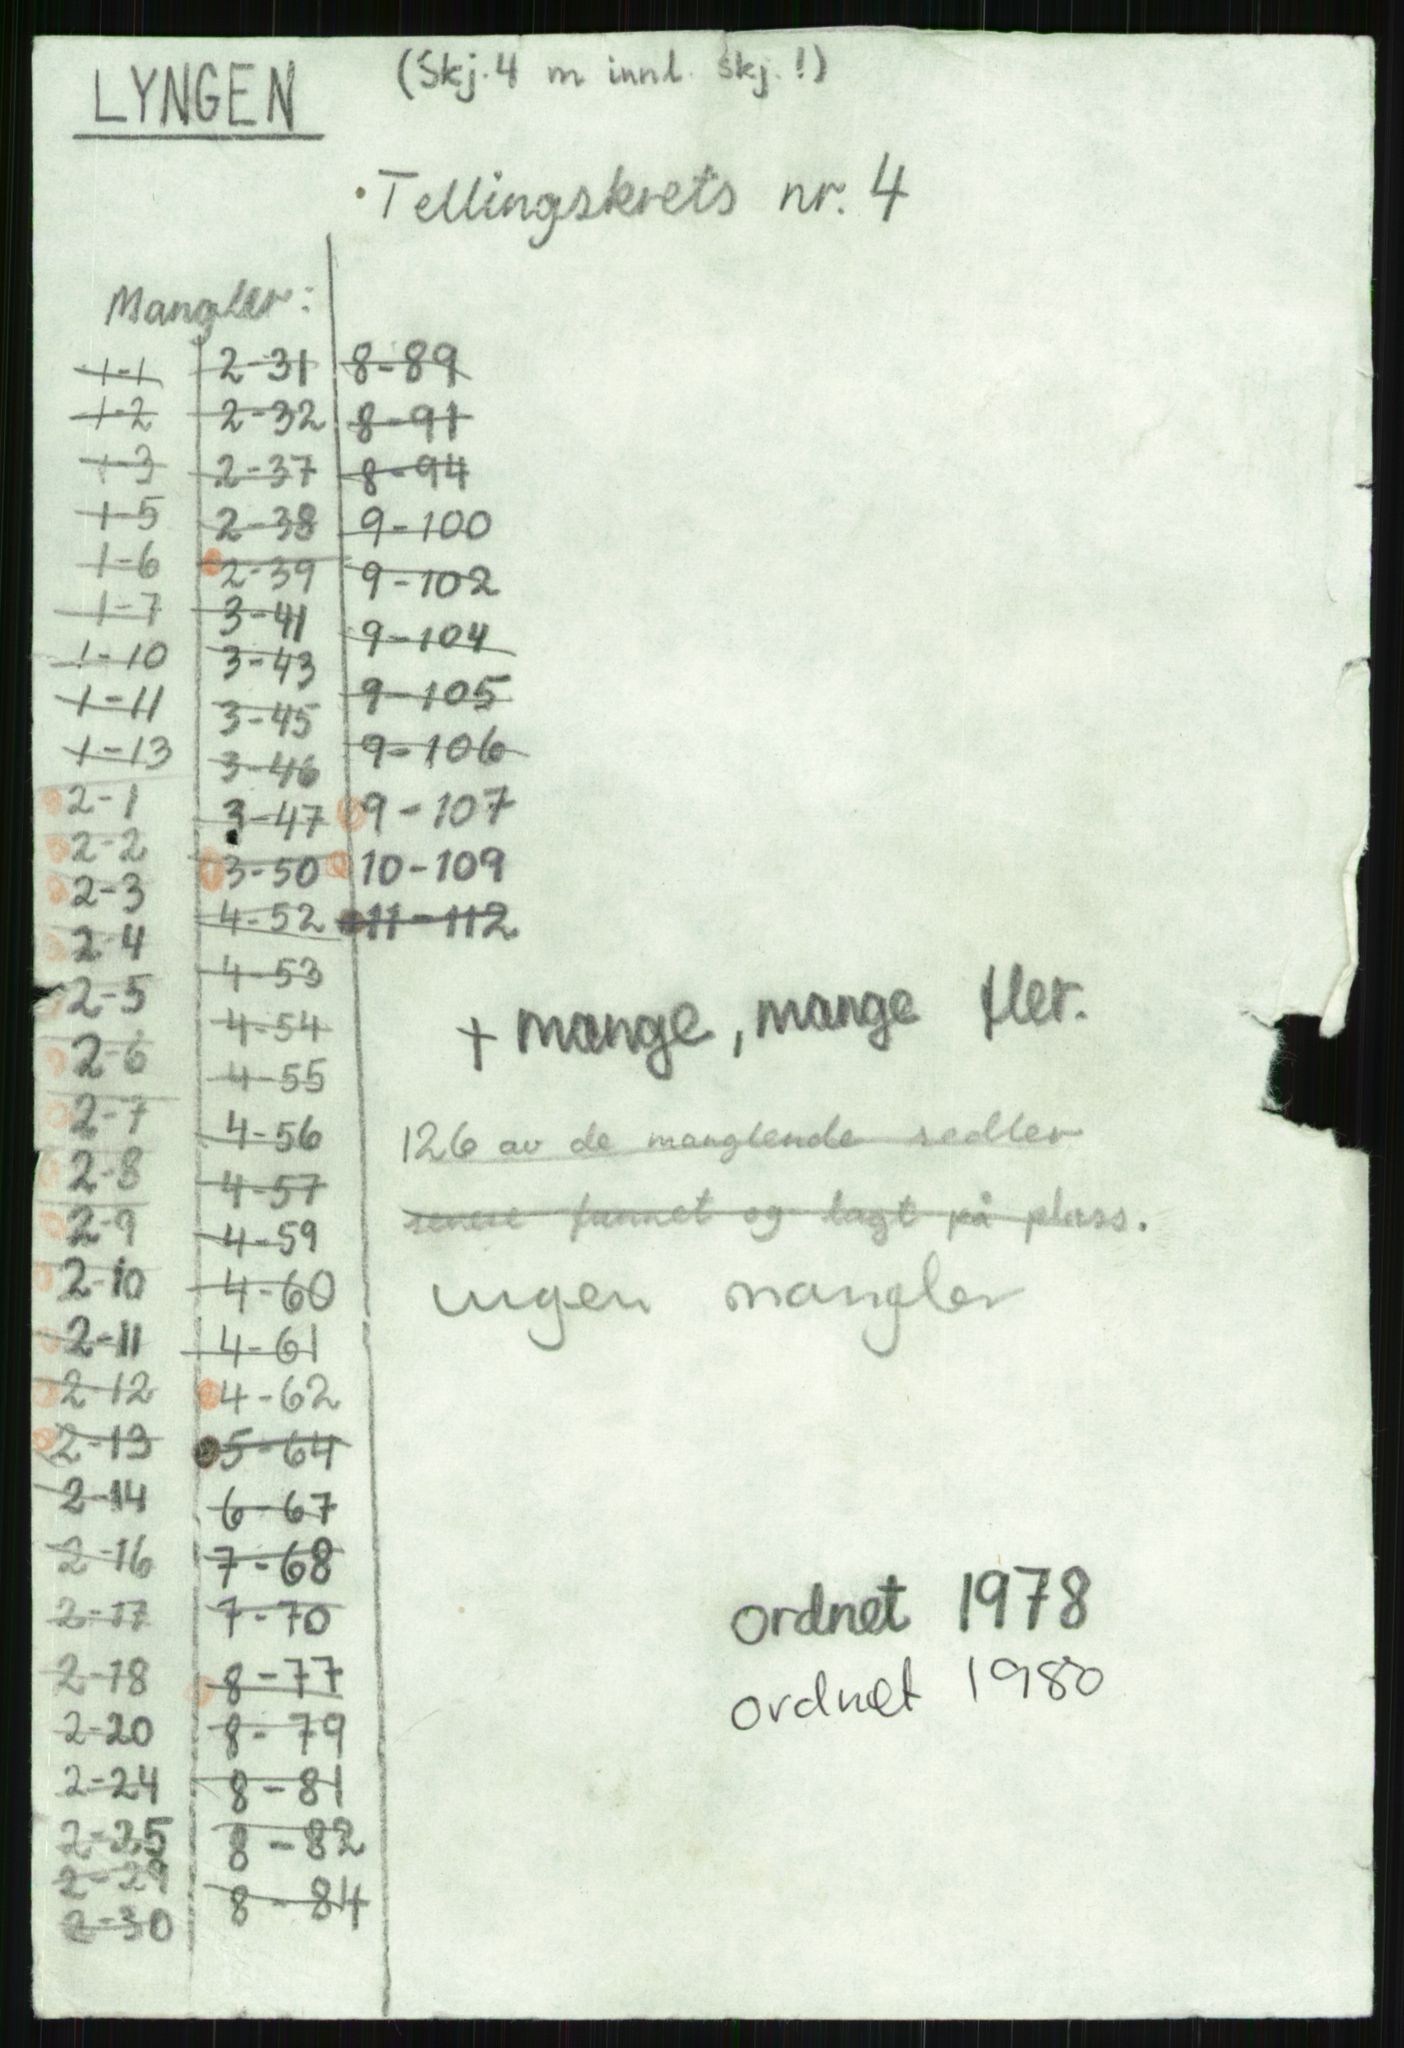 LYNGEN
(Skj. 4 m innl. skj.!)
Tellingskrets nr. 4
Mangler:
1-1
1-2
1-3
1-5
1-6
1-7
1-10
1-11
1-13
2-1
2-2
2-3
2-4
2-5
2-6
2-7
2-8
2-9
2-10
2-11
2-12
2-13
2-14
2-16
2-17
2-18
2-20
2-24
2-25
2-29
2-30
2-31
2-32
2-37
2-38
2-39
3-41
3-43
3-45
3-46
3-47
3-50
4-52
4-53
4-54
4-55
4-56
4-57
4-59
4-60
4-61
4-62
5-64
6-67
7-68
7-70
8-77
8-79
8-81
8-82
8-84
8-89
8-91
8-94
9-100
9-102
9-104
9-105
9-106
9-107
10-109
11-112
+ mange, mange fler.
126 av de manglende sedler
senere funnet og lagt på plass.
ingen mangler
ordnet 1978
ordnet 1980